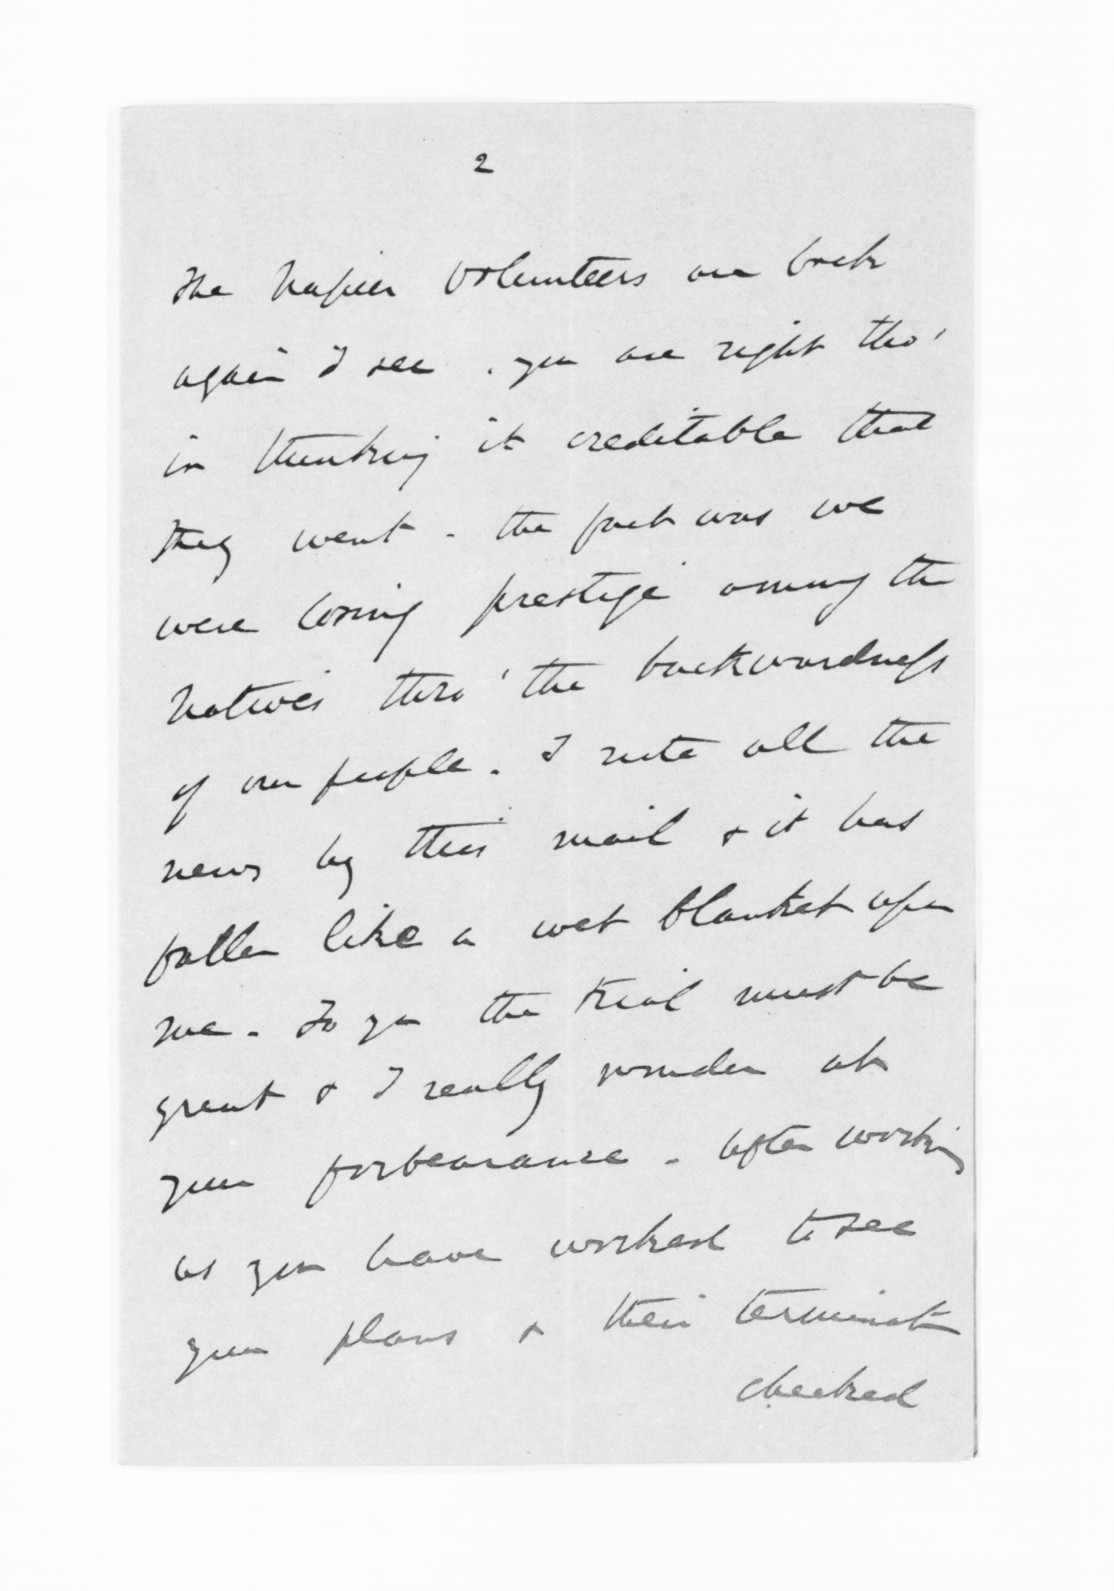 2
The Napier Volunteers are back
again I see. you are right tho'
in thinking it creditable that
they went - the fact was we
were losing prestige among the
Natives thro' the backwardness
of our people. I note all the
news by this mail & it has
fallen like a wet blanket upon
me. To you the trial must be
great & I really wonder at
your forbearance - after working
as you have worked to see
your plans & their
checked